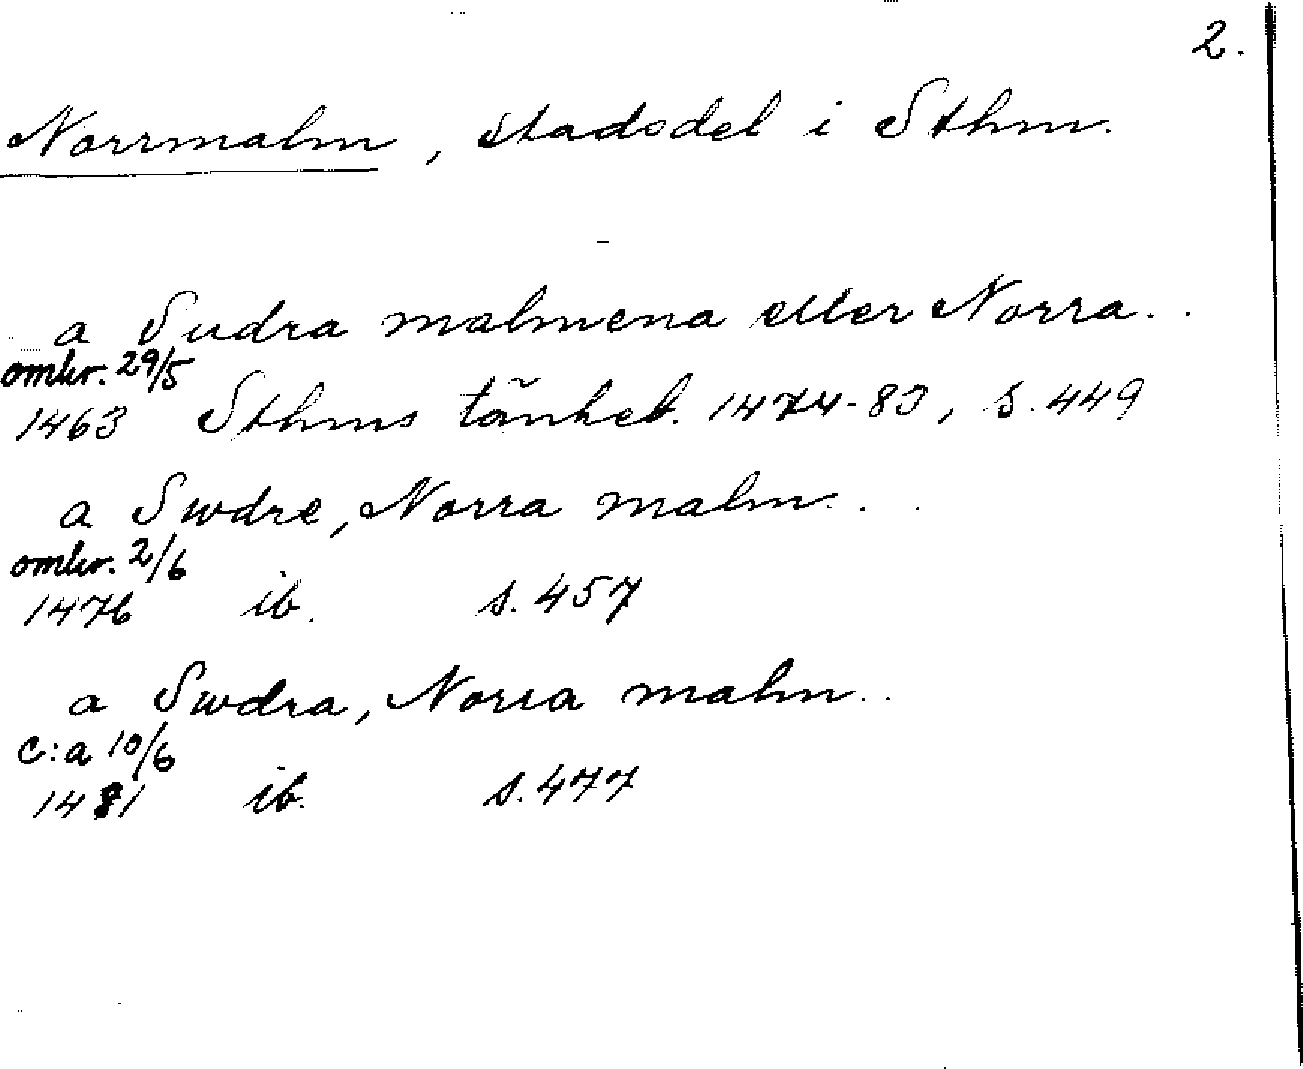 2.
Norrmalm, stadsdel i Sthm.
a Sudra malmena eller Norra..
omkr. 29/5
1463 Sthms tänkeb. 1474-83, s. 449
a Swdre, Norra malm...
omkr. 2/6
1476 ib. s. 457
a Swdra, Norra malm..
c:a 10/6
1481 ib. s. 477